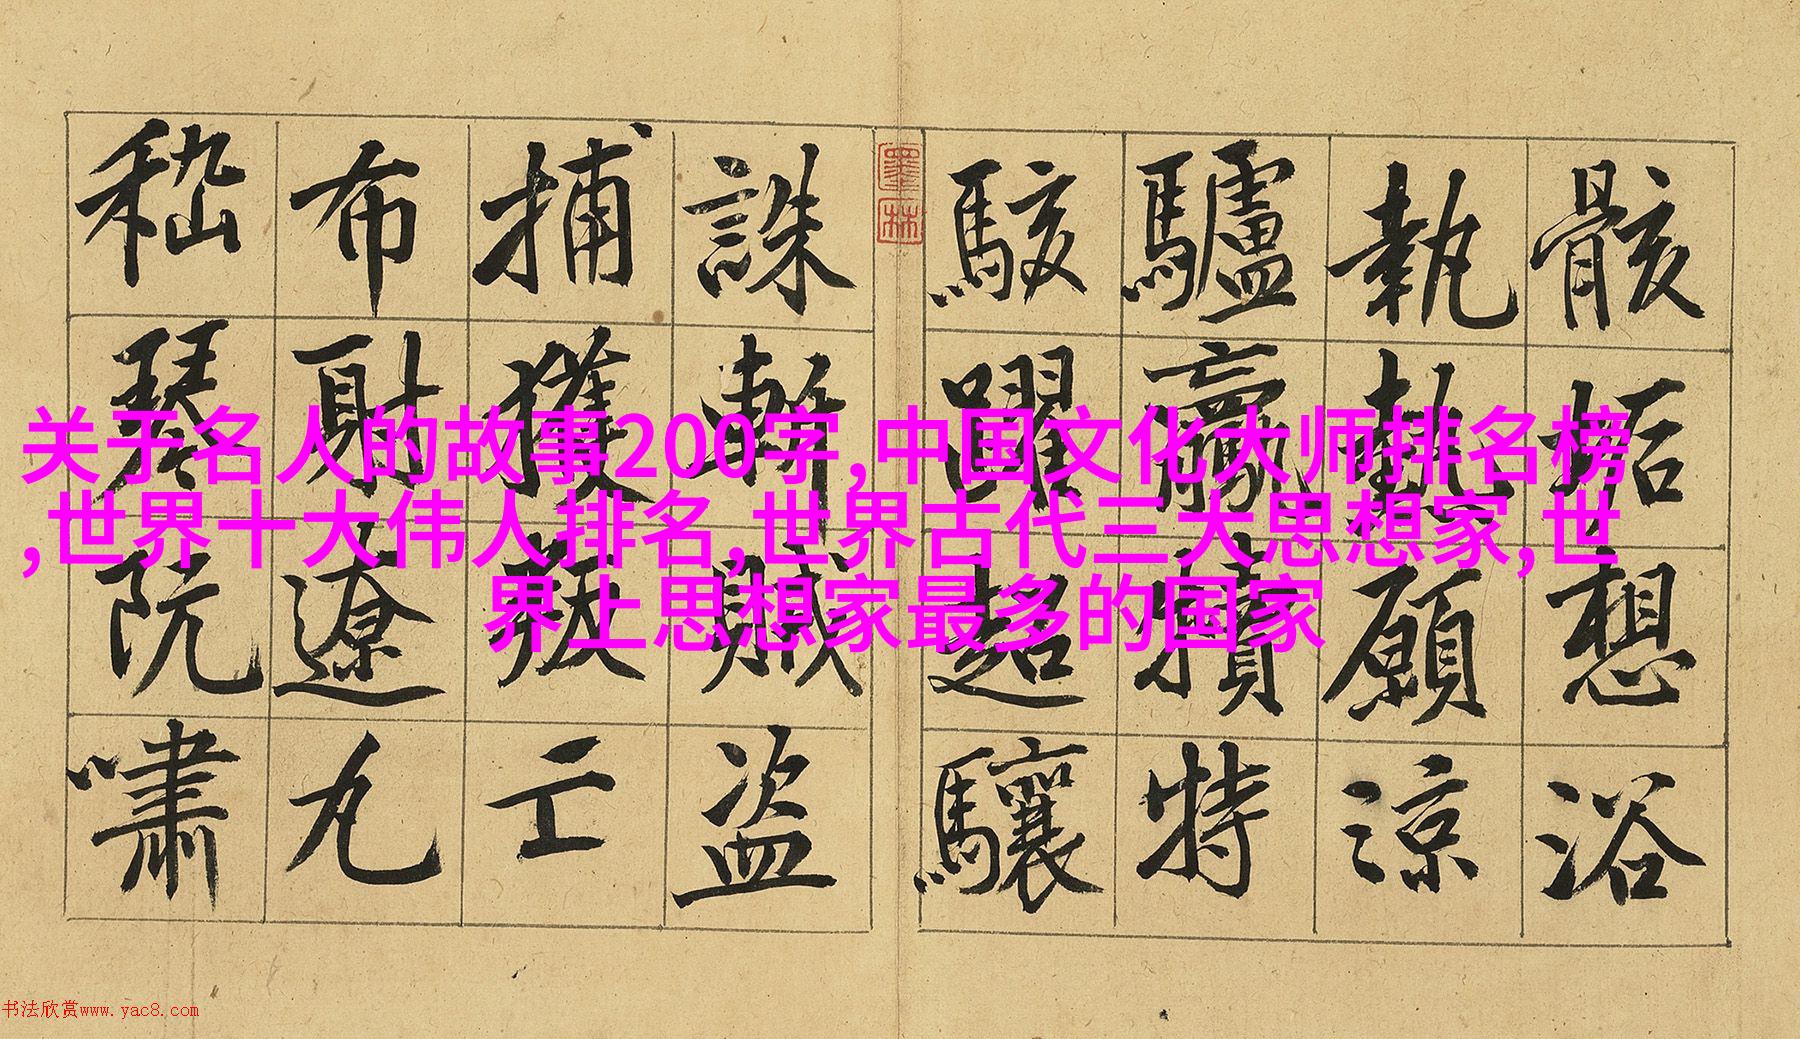 骸垢想浴
執熱願涼
驢騾犢特
駭躍超驤
誅斬賊盜
捕獲叛亡
布射遼丸
嵇琴阮嘯
墨林
关于名人的故事200字,中国文化大师排名榜
,世界十大伟人排名,世界古代三大思想家,世
界上思想家最多的国家
书法欣赏www.yac8.com